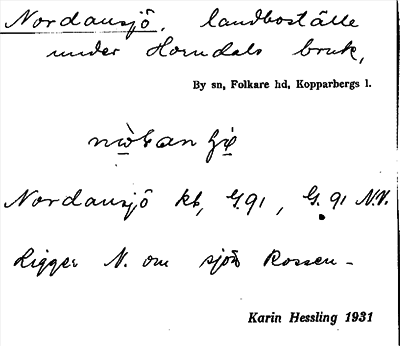 Nordansjö, landboställe
under Horndals bruk,
By sn, Folkare hd, Kopparbergs l.
Nordansjö kb, G.91, G.91 N.V.
Ligger N. om sjön Rossen.
Karin Hessling 1931